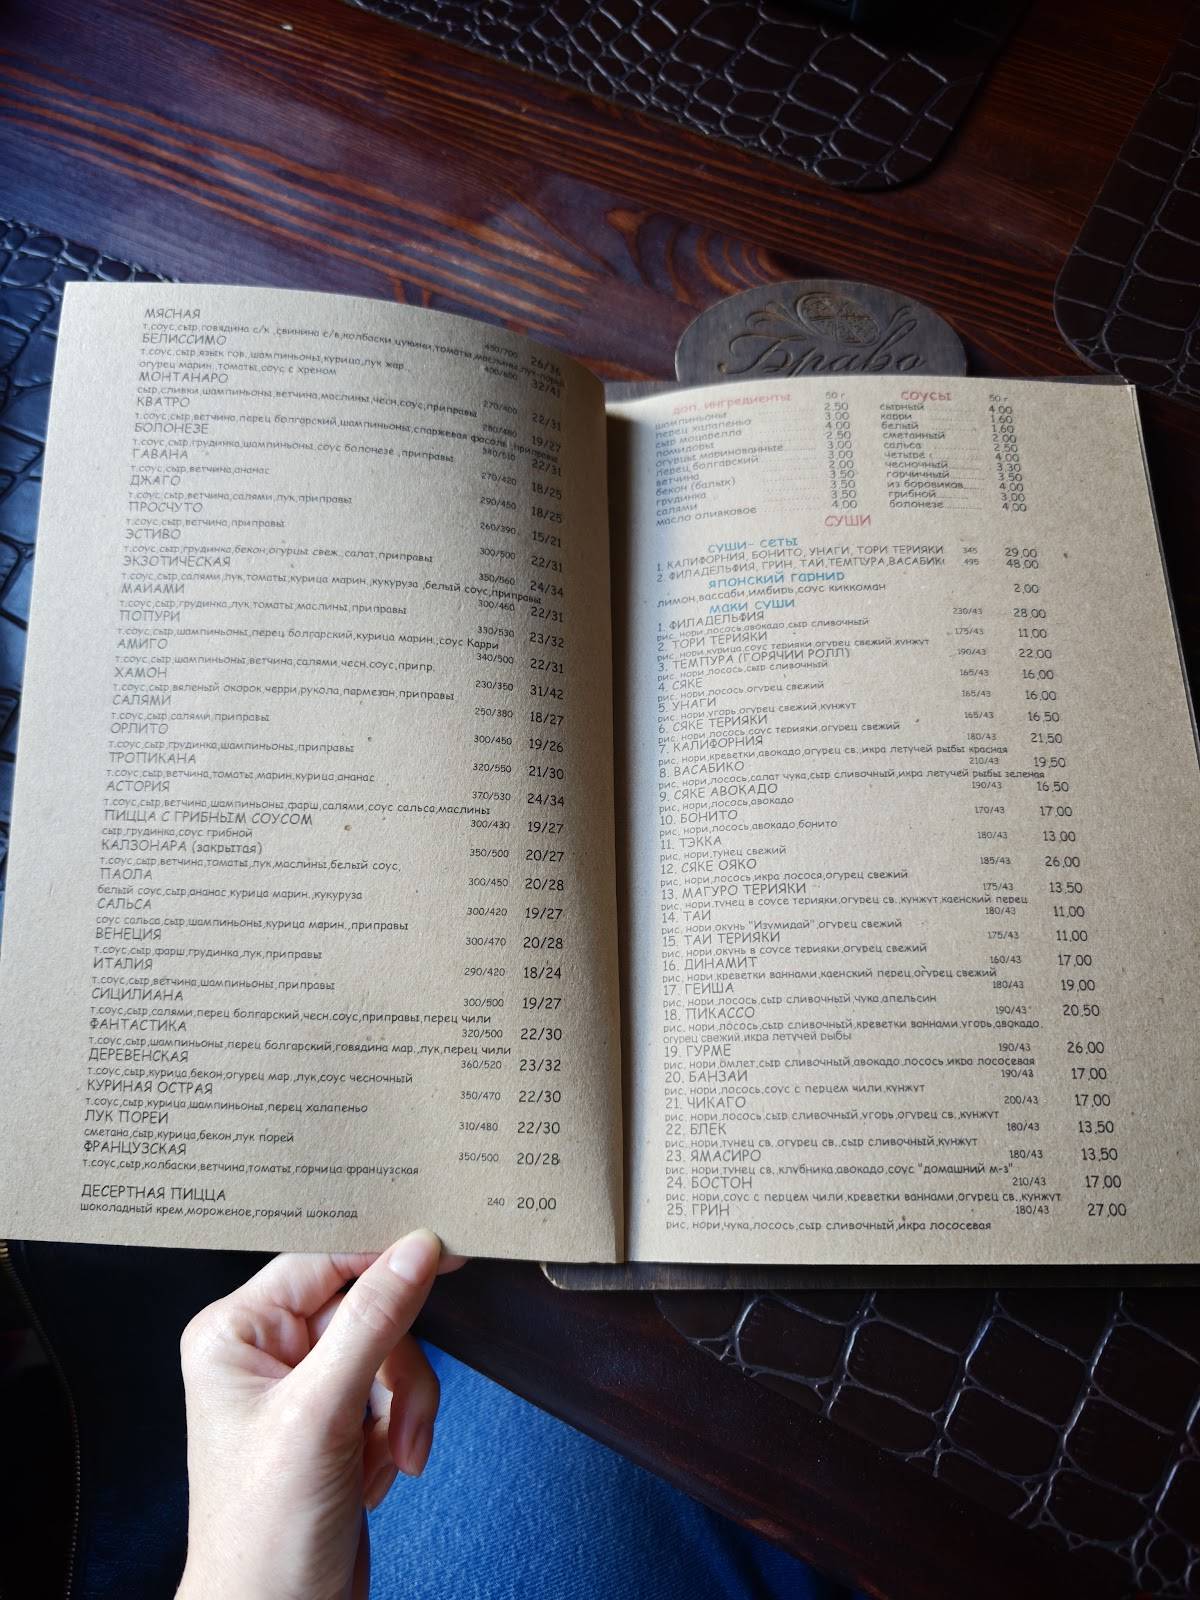 МЯСНАЯ
т.соус,сыр,говядина с/к ,свинина с/в,колбаски,цукини,томаты,маслины,лук-порей
450/700 26/36
БЕЛИССИМО
т.соус,сыр,язык гов.,шампиньоны,курица,лук жар.,
огурец марин.,томаты,соус с хреном
400/600 32/41
МОНТАНАРО
сыр,сливки,шампиньоны,ветчина,маслины,чесн.соус,приправы
270/400 22/31
КВАТРО
т.соус,сыр,ветчина,перец болгарский,шампиньоны,спаржевая фасоль,приправы
280/480 19/27
БОЛОНЕЗЕ
т.соус,сыр,грудинка,шампиньоны,соус болонезе ,приправы
340/510 22/31
ГАВАНА
т.соус,сыр,ветчина,ананас
270/420 18/25
ДЖАГО
т.соус,сыр,ветчина,салями,лук,приправы
290/450 18/25
ПРОСЧУТО
т.соус,сыр,ветчина,приправы
260/390 15/21
ЭСТИВО
т.соус,сыр,грудинка,бекон,огурцы свеж.,салат,приправы
300/500 22/31
ЭКЗОТИЧЕСКАЯ
т.соус,сыр,салями,лук,томаты,курица марин.,кукуруза ,белый соус,приправы
350/560 24/34
МАЙАМИ
т.соус,сыр,грудинка,лук,томаты,маслины,приправы
300/460 22/31
ПОПУРИ
т.соус,сыр,шампиньоны,перец болгарский,курица марин.,соус Карри
330/530 23/32
АМИГО
т.соус,сыр,шампиньоны,ветчина,салями,чесн.соус,припр.
340/500 22/31
ХАМОН
т.соус,сыр,вяленый окорок,черри,рукола,пармезан,приправы
230/350 31/42
САЛЯМИ
т.соус,сыр,салями,приправы
250/380 18/27
ОРЛИТО
т.соус,сыр,грудинка,шампиньоны,приправы
300/450 19/26
ТРОПИКАНА
т.соус,сыр,ветчина,томаты,марин.курица,ананас
320/550 21/30
АСТОРИЯ
т.соус,сыр,ветчина,шампиньоны,фарш,салями,соус сальса,маслины
370/530 24/34
ПИЦЦА С ГРИБНЫМ СОУСОМ
сыр,грудинка,соус грибной
300/430 19/27
КАЛЗОНАРА (закрытая)
т.соус,сыр,ветчина,томаты,лук,маслины,белый соус,
350/500 20/27
ПАОЛА
белый соус,сыр,ананас,курица марин.,кукуруза
300/450 20/28
САЛЬСА
соус сальса,сыр,шампиньоны,курица марин.,приправы
300/420 19/27
ВЕНЕЦИЯ
т.соус,сыр,фарш,грудинка,лук,приправы
300/470 20/28
ИТАЛИЯ
т.соус,сыр,ветчина,шампиньоны,приправы
290/420 18/24
СИЦИЛИАНА
т.соус,сыр,салями,перец болгарский,чесн.соус,приправы,перец чили
300/500 19/27
ФАНТАСТИКА
т.соус,сыр,шампиньоны,перец болгарский,говядина мар.,лук,перец чили
320/500 22/30
ДЕРЕВЕНСКАЯ
т.соус,сыр,курица,бекон,огурец мар.,лук,соус чесночный
360/520 23/32
КУРИНАЯ ОСТРАЯ
т.соус,сыр,курица,шампиньоны,перец халапеньо
350/470 22/30
ЛУК ПОРЕЙ
сметана,сыр,курица,бекон,лук порей
310/480 22/30
ФРАНЦУЗСКАЯ
т.соус,сыр,колбаски,ветчина,томаты,горчица французская
350/500 20/28
ДЕСЕРТНАЯ ПИЦЦА
шоколадный крем,мороженое,горячий шоколад
240 20,00
Браво
доп. ингредиенты 50 г
шампиньоны 2,50
перец халапеньо 3,00
сыр моцарелла 4,00
помидоры 2,50
огурцы маринованные 3,00
перец болгарский 3,00
ветчина 2,00
бекон (балык) 3,50
грудинка 3,50
салями 3,50
масло оливковое 4,00
соусы 50 г
сырный 4,00
карри 1,60
белый 1,60
сметанный 2,00
сальса 2,50
четыре 4,00
чесночный 3,30
горчичный 3,50
из боровиков 4,00
грибной 3,00
болонезе 4,00
СУШИ
суши- сеты
1. КАЛИФОРНИЯ, БОНИТО, УНАГИ, ТОРИ ТЕРИЯКИ 345 29,00
2. ФИЛАДЕЛЬФИЯ, ГРИН, ТАЙ,ТЕМПУРА,ВАСАБИКО 495 48,00
японский гарнир
лимон,вассаби,имбирь,соус киккоман 2,00
маки суши
1. ФИЛАДЕЛЬФИЯ 230/43 28,00
рис, нори,лосось,авокадо,сыр сливочный
2. ТОРИ ТЕРИЯКИ 175/43 11,00
рис, нори,курица,соус терияки,огурец свежий,кунжут
3. ТЕМПУРА (ГОРЯЧИЙ РОЛЛ) 190/43 22,00
рис, нори,лосось,сыр сливочный
4. СЯКЕ 165/43 16,00
рис, нори,лосось,огурец свежий
5. УНАГИ 165/43 16,00
рис, нори,угорь,огурец свежий,кунжут
6. СЯКЕ ТЕРИЯКИ 165/43 16,50
рис, нори,лосось,соус терияки,огурец свежий
7. КАЛИФОРНИЯ 180/43 21,50
рис, нори,креветки,авокадо,огурец св.,икра летучей рыбы красная
8. ВАСАБИКО 210/43 19,50
рис, нори,лосось,салат чука,сыр сливочный,икра летучей рыбы зеленая
9. СЯКЕ АВОКАДО 190/43 16,50
рис, нори,лосось,авокадо
10. БОНИТО 170/43 17,00
рис, нори,лосось,авокадо,бонито
11. ТЭККА 180/43 13,00
рис, нори,тунец свежий
12. СЯКЕ ОЯКО 185/43 26,00
рис, нори,лосось,икра лосося,огурец свежий
13. МАГУРО ТЕРИЯКИ 175/43 13,50
рис, нори,тунец в соусе терияки,огурец св.,кунжут,каенский перец
14. ТАЙ 180/43 11,00
рис, нори,окунь "Изумидай",огурец свежий
15. ТАЙ ТЕРИЯКИ 175/43 11,00
рис, нори,окунь в соусе терияки,огурец свежий
16. ДИНАМИТ 160/43 17,00
рис, нори,креветки ваннами,каенский перец,огурец свежий
17. ГЕЙША 180/43 19,00
рис, нори,лосось,сыр сливочный чука,апельсин
18. ПИКАССО 190/43 20,50
рис, нори,лосось,сыр сливочный,креветки ваннами,угорь,авокадо,
огурец свежий,икра летучей рыбы
19. ГУРМЕ 190/43 26,00
рис, нори,омлет,сыр сливочный,авокадо,лосось,икра лососевая
20. БАНЗАЙ 190/43 17,00
рис, нори,лосось,соус с перцем чили,кунжут
21. ЧИКАГО 200/43 17,00
рис, нори,лосось,сыр сливочный,угорь,огурец св.,кунжут
22. БЛЕК 180/43 13,50
рис, нори,тунец св.,огурец св.,сыр сливочный,кунжут
23. ЯМАСИРО 180/43 13,50
рис, нори,тунец св.,клубника,авокадо,соус "домашний м-з"
24. БОСТОН 210/43 17,00
рис, нори,соус с перцем чили,креветки ваннами,огурец св.,кунжут
25. ГРИН 180/43 27,00
рис, нори,чука,лосось,сыр сливочный,икра лососевая